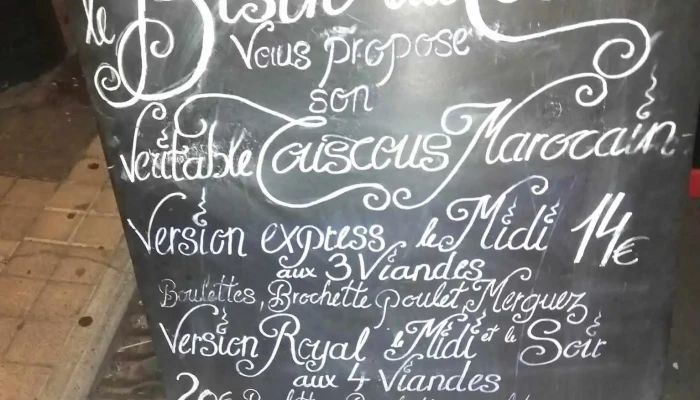 le Bistr
Vous propose
son
Véritable Couscous Marocain
Version express le Midi 14€
aux 3 Viandes
Boulettes, Brochette poulet, Merguez
Version Royal le Midi et le Soir
aux 4 Viandes
20€